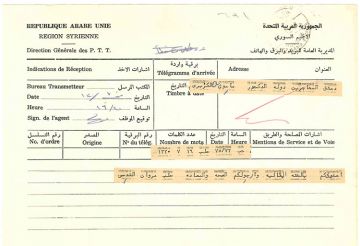 REPUBLIQUE ARABE UNIE
REGION SYRIENNE
Direction Générale des P. T. T.
الجمهورية العربية المتحدة
الاقليم السوري
المديرية العامة للبريد والبرق والهاتف
Indications de Réception
اشارات الاخذ
برقية واردة
Télégramme d'arrivée
Adresse
العنوان
Bureau Transmetteur
مكتب المرسل
Date
التاريخ
Heure
الساعة
Sign. de l'agent
توقيع الموظف
التاريخ
Timbre à date
دمشق المهاجرين دولة الدكتور مأمون الكزبري
رقم التسلسل
No. d'ordre
المصدر
Origine
رقم البرقية
No du télég.
عدد الكلمات
Nombre de mots
التاريخ
Date
الساعة
Heure
اشارات المصلحة والطريق
Mentions de Service et de Voie
حلب
اهنئكم بالثقة الغالية وارجو لكم الصحة والسعادة حلب مروان